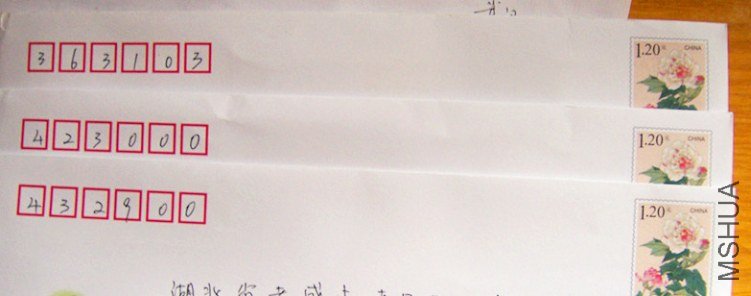 363103
1.20元 CHINA
423000
1.20元 CHINA
432900
1.20元 CHINA
湖北省孝感市
MSHUA